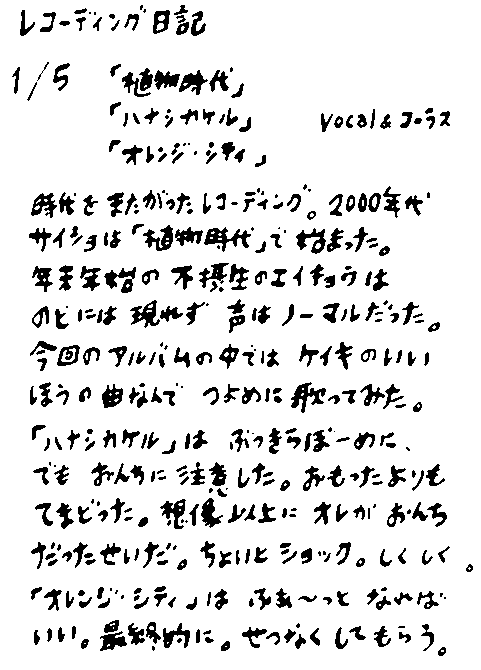 レコーディング日記
1/5 「植物時代」
「ハナシカケル」 Vocal&コーラス
「オレンジ・シティ」
時代をまたがったレコーディング。2000年代
サイショは「植物時代」で始まった。
年末年始の不摂生のエイキョウは
のどには現れず 声はノーマルだった。
今回のアルバムの中では ケイキのいい
ほうの曲なんで つよめに歌ってみた。
「ハナシカケル」は ぶっきらぼーめに、
でも おんちに注意した。おもったよりも
てまどった。想像以上に オレが おんち
だったせいだ。ちょいとショック。しくしく。
「オレンジ・シティ」は ふぁ〜っと なれば
いい。最終的に。せつなくしてもらう。